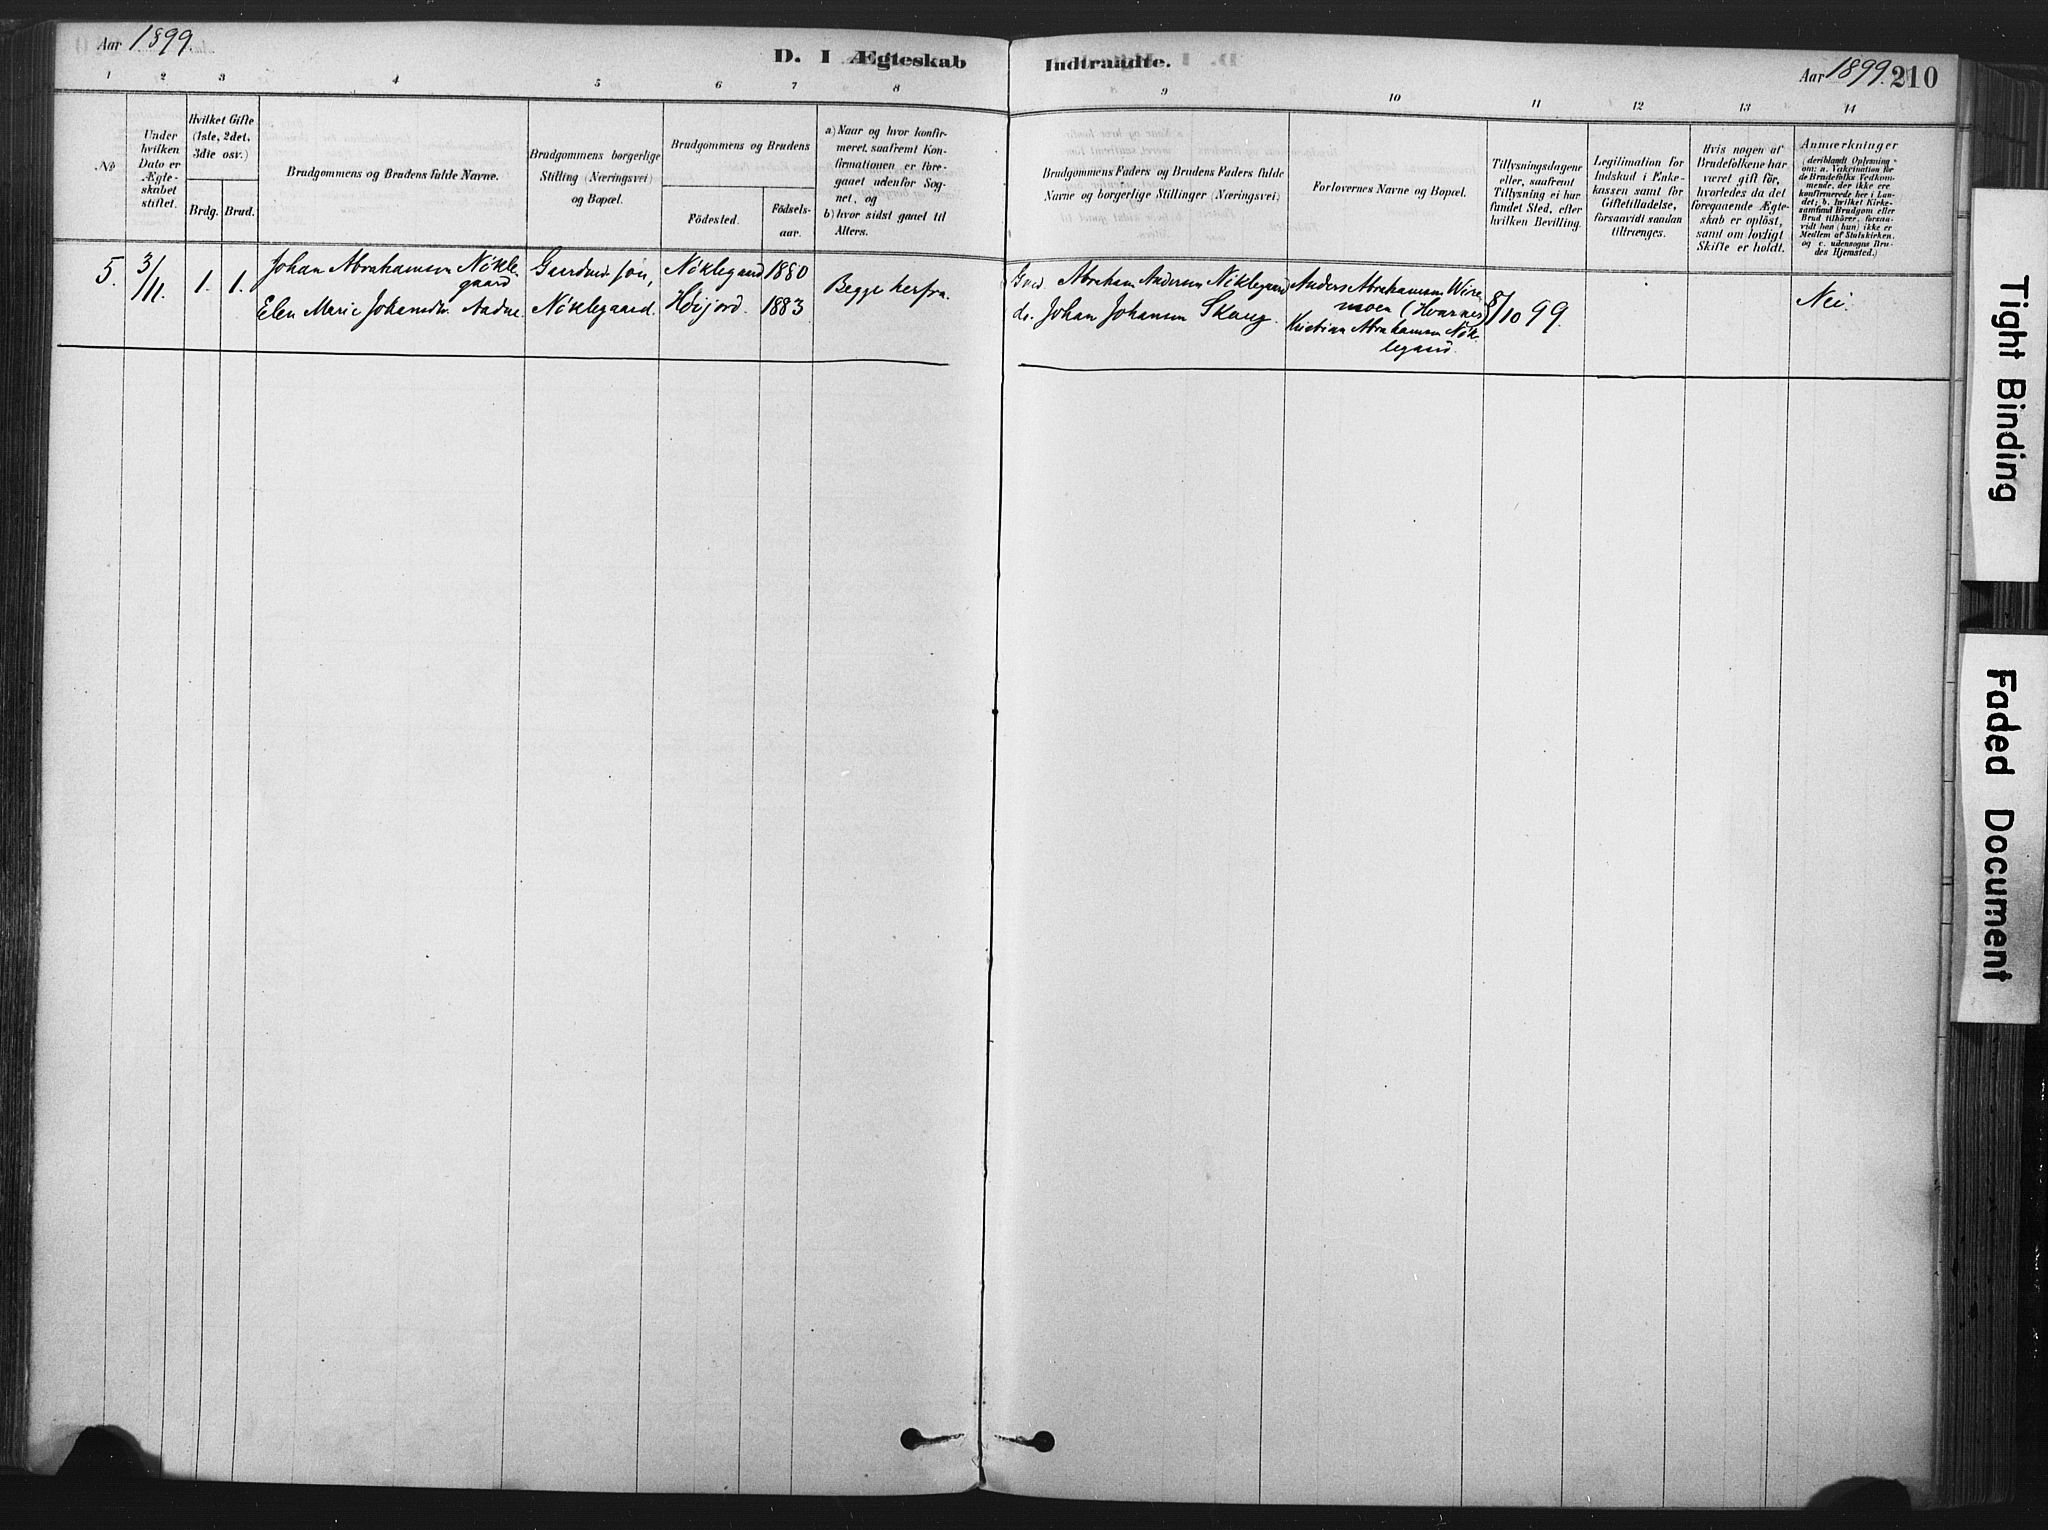 Aar 1899.
D. I Ægteskab Indtraadte.
Aar 1899. 210
1 2 3 4 5 6 7 8 9 10 11 12 13 14
№
Under
hvilken
Dato er
Ægte-
skabet
stiftet.
Hvilket Gifte
(1ste, 2det,
3die osv.)
Brdg.
Brud.
Brudgommens og Brudens fulde Navne.
Brudgommens borgerlige
Stilling (Næringsvei)
og Bopæl.
Brudgommens og Brudens
Födested.
Födsels-
aar.
a) Naar og hvor konfir-
meret, saafremt Kon-
firmationen er fore-
gaaet udenfor Sog-
net, og
b) hvor sidst gaaet til
Alters.
Brudgommens Faders og Brudens Faders fulde
Navne og borgerlige Stillinger (Næringsvei)
Forlovernes Navne og Bopæl.
Tillysningsdagene
eller, saafremt
Tillysning ei har
fundet Sted, efter
hvilken Bevilling.
Legitimation for
Indskud i Enke-
kassen samt for
Giftetilladelse,
forsaavidt saadan
tiltrænges.
Hvis nogen af
Brudefolkene har
været gift för,
hvorledes da det
foregaaende Ægte-
skab er oplöst,
samt om lovligt
Skifte er holdt.
Anmærkninger
(deriblandt Oplysning
om: a. Vakcination for
de Brudefolks Vedkom-
mende, der ikke ere
konfirmerede her i Lan-
det; b. hvilket Kirke-
samfund Brudgom eller
Brud tilhörer, forsaa-
vidt han (hun) ikke er
Medlem af Statskirken,
og c. udensogns Bru-
des Hjemsted.)
5. 3/11. 1. 1. Johan Abrahamsen Nökle-
gaard
Gaardm. sön, Nöklegaard 1880
Elen Marie Johansdtr. Aadne
Nöklegaard. Höijord. 1883
Begge herfra.
Gbd. Abraham Andersen Nöklegaard
do. Johan Johansen Skaug.
Anders Abrahamsen
moen (Hvarnes)
Kristian Abrahamsen Nök-
legaard.
8/10 99.
Nei.
Tight Binding
Faded Document